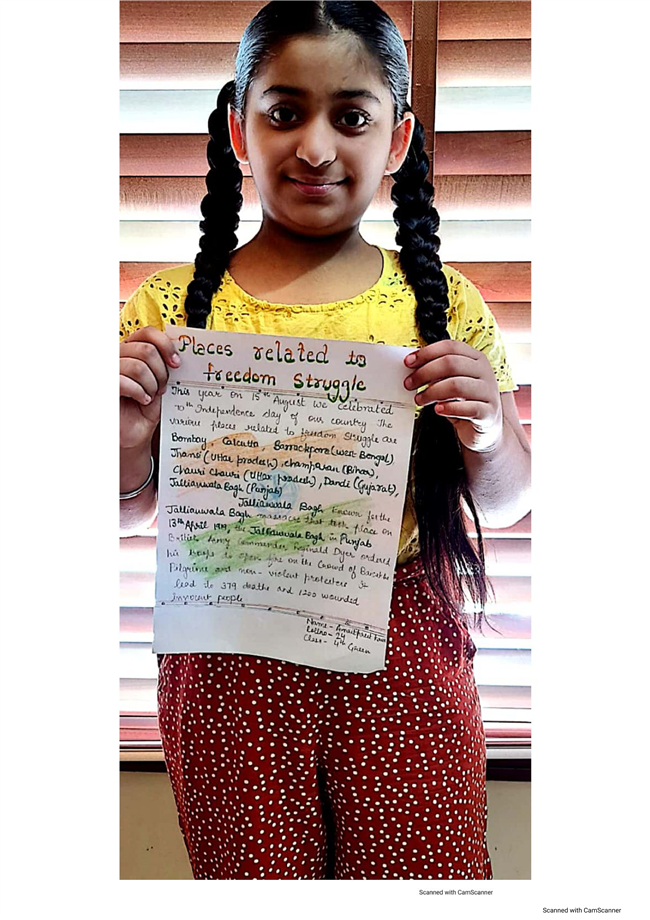 Places related to
freedom Struggle
This year on 15th August we celebrated
Independence day of our country The
various places related to freedom struggle are
Bombay, Calcutta, Barrackpore (west Bengal)
Jhansi (Uttar pradesh), champaran (Bihar),
Chauri Chauri (Uttar pradesh), Dandi (Gujarat),
Jallianwala Bagh (Punjab)
Jallianwala Bagh known for the
Jallianwala Bagh massacre that took place on
13th April 1919 Jallianwala Bagh in Punjab
British Army Commander Reginald Dyer ordered
his troops to open fire on the Crowd of
Pilgrims and non-violent protesters It
lead to 379 deaths and 1200 wounded
innocent people
Name - Amritpreet Kaur
Rollno - 24
Class - 4th Green
Scanned with CamScanner
Scanned with CamScanner